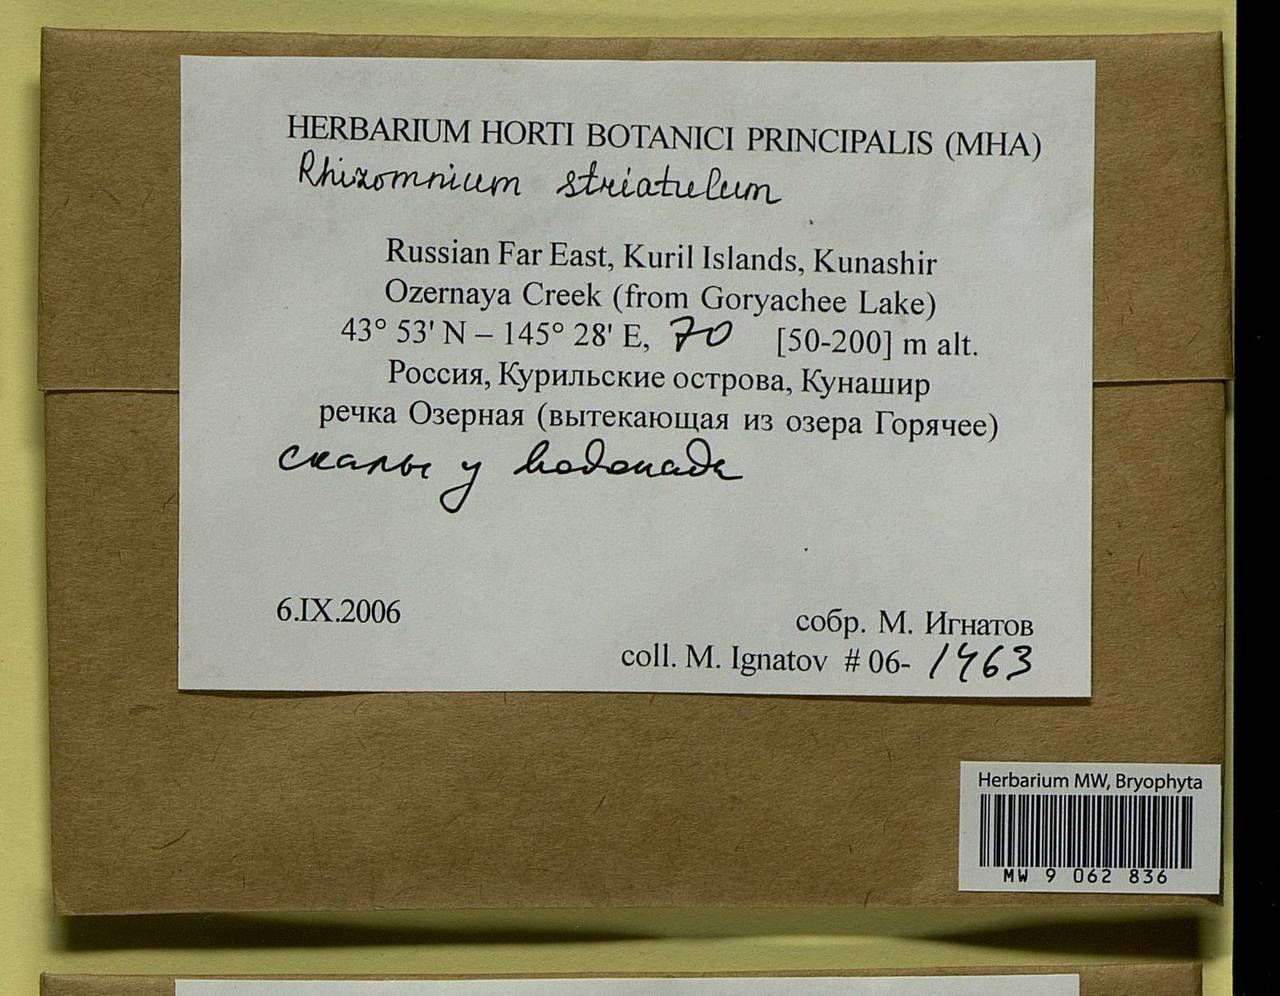 HERBARIUM HORTI BOTANICI PRINCIPALIS (MHA)
Rhizomnium striatulum
Russian Far East, Kuril Islands, Kunashir
Ozernaya Creek (from Goryachee Lake)
43° 53' N – 145° 28' E, 70 [50-200] m alt.
Россия, Курильские острова, Кунашир
речка Озерная (вытекающая из озера Горячее)
скалы у водопада
6.IX.2006
собр. М. Игнатов
coll. M. Ignatov # 06- 1463
Herbarium MW, Bryophyta
MW 9 062 836